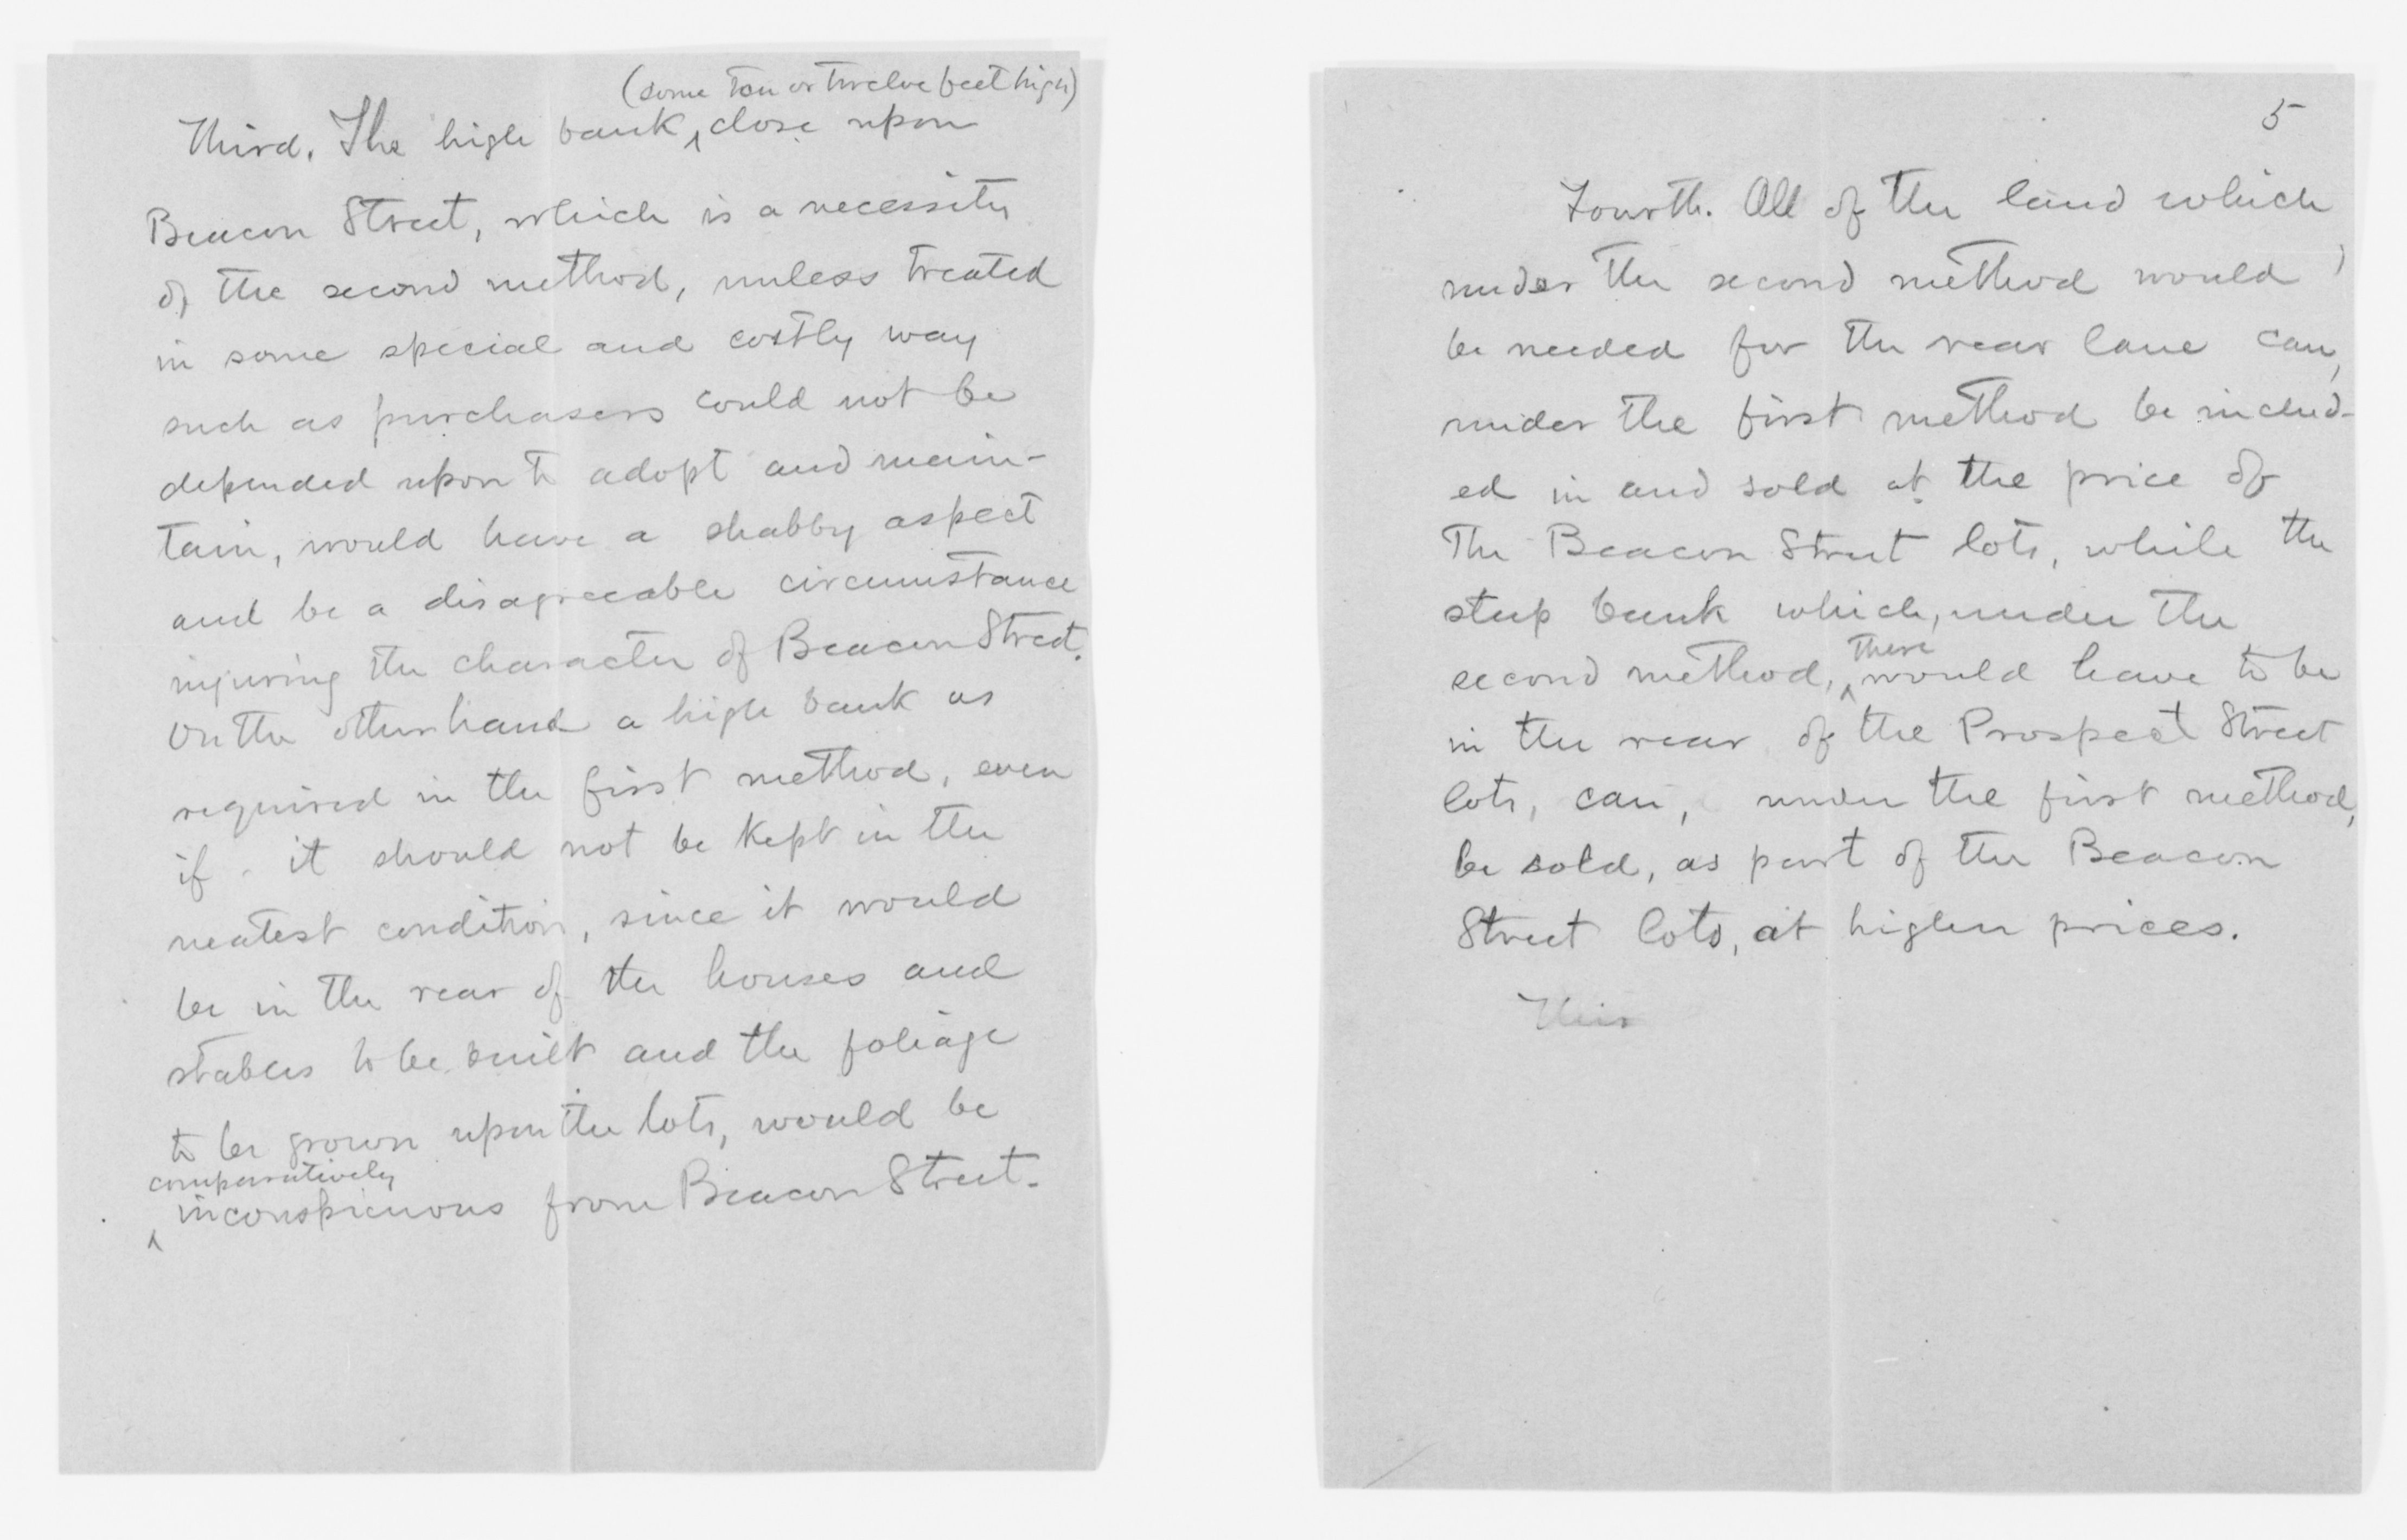 (some ten or twelve feet high)
Third. The high bank ‸ close upon
Beacon Street, which is a necessity
of the second method, unless treated
in some special and costly way
such as purchasers could not be
depended upon to adopt and main-
tain, would have a shabby aspect
and be a disagreeable circumstance
injuring the character of Beacon Street.
On the other hand a high bank as
required in the first method, even
if it should not be kept in the
neatest condition, since it would
be in the rear of the houses and
stables to be built and the foliage
to be grown upon the lots, would be
comparatively
‸ inconspicuous from Beacon Street.
5
Fourth. All of the land which
under the second method would
be needed for the rear lane can,
under the first method be includ-
ed in and sold at the price of
The Beacon Street lots, while the
steep bank which, under the
there
second method, ‸ would have to be
in the rear of the Prospect Street
lots, can, under the first method,
be sold, as part of the Beacon
Street lots, at higher prices.